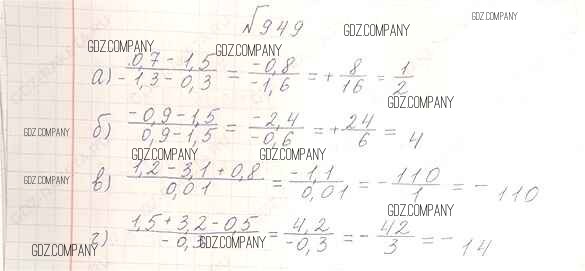 №949
GDZ.COMPANY
GDZ.COMPANY
GDZ.COMPANY
GDZ.COMPANY
а) 0,7 - 1,5 / -1,3 - 0,3 = -0,8 / -1,6 = + 8/16 = 1/2
GDZ.COMPANY
б) -0,9 - 1,5 / 0,9 - 1,5 = -2,4 / -0,6 = + 24/6 = 4
GDZ.COMPANY
GDZ.COMPANY
GDZ.COMPANY
GDZ.COMPANY
в) 1,2 - 3,1 + 0,8 / 0,01 = -1,1 / 0,01 = - 110/1 = - 110
GDZ.COMPANY
GDZ.COMPANY
г) 1,5 + 3,2 - 0,5 / -0,3 = 4,2 / -0,3 = - 42/3 = - 14
GDZ.COMPANY
GDZ.COMPANY